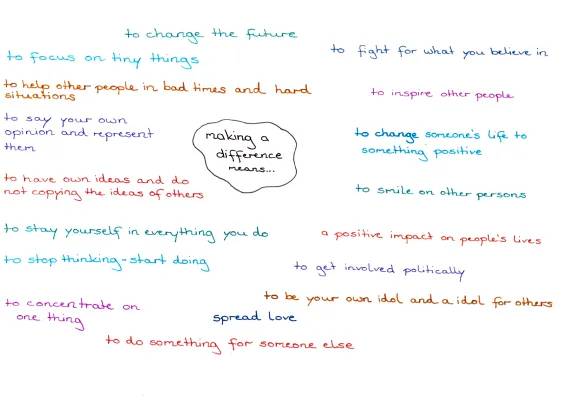 to change the future
to focus on tiny things
to fight for what you believe in
to help other people in bad times and hard
situations
to inspire other people
to say your own
opinion and represent
them
making a
difference
means...
to change someone's life to
something positive
to have own ideas and do
not copying the ideas of others
to smile on other persons
to stay yourself in everything you do
a positive impact on people's lives
to stop thinking-start doing
to get involved politically
to concentrate on
one thing
to be your own idol and a idol for others
spread love
to do something for someone else